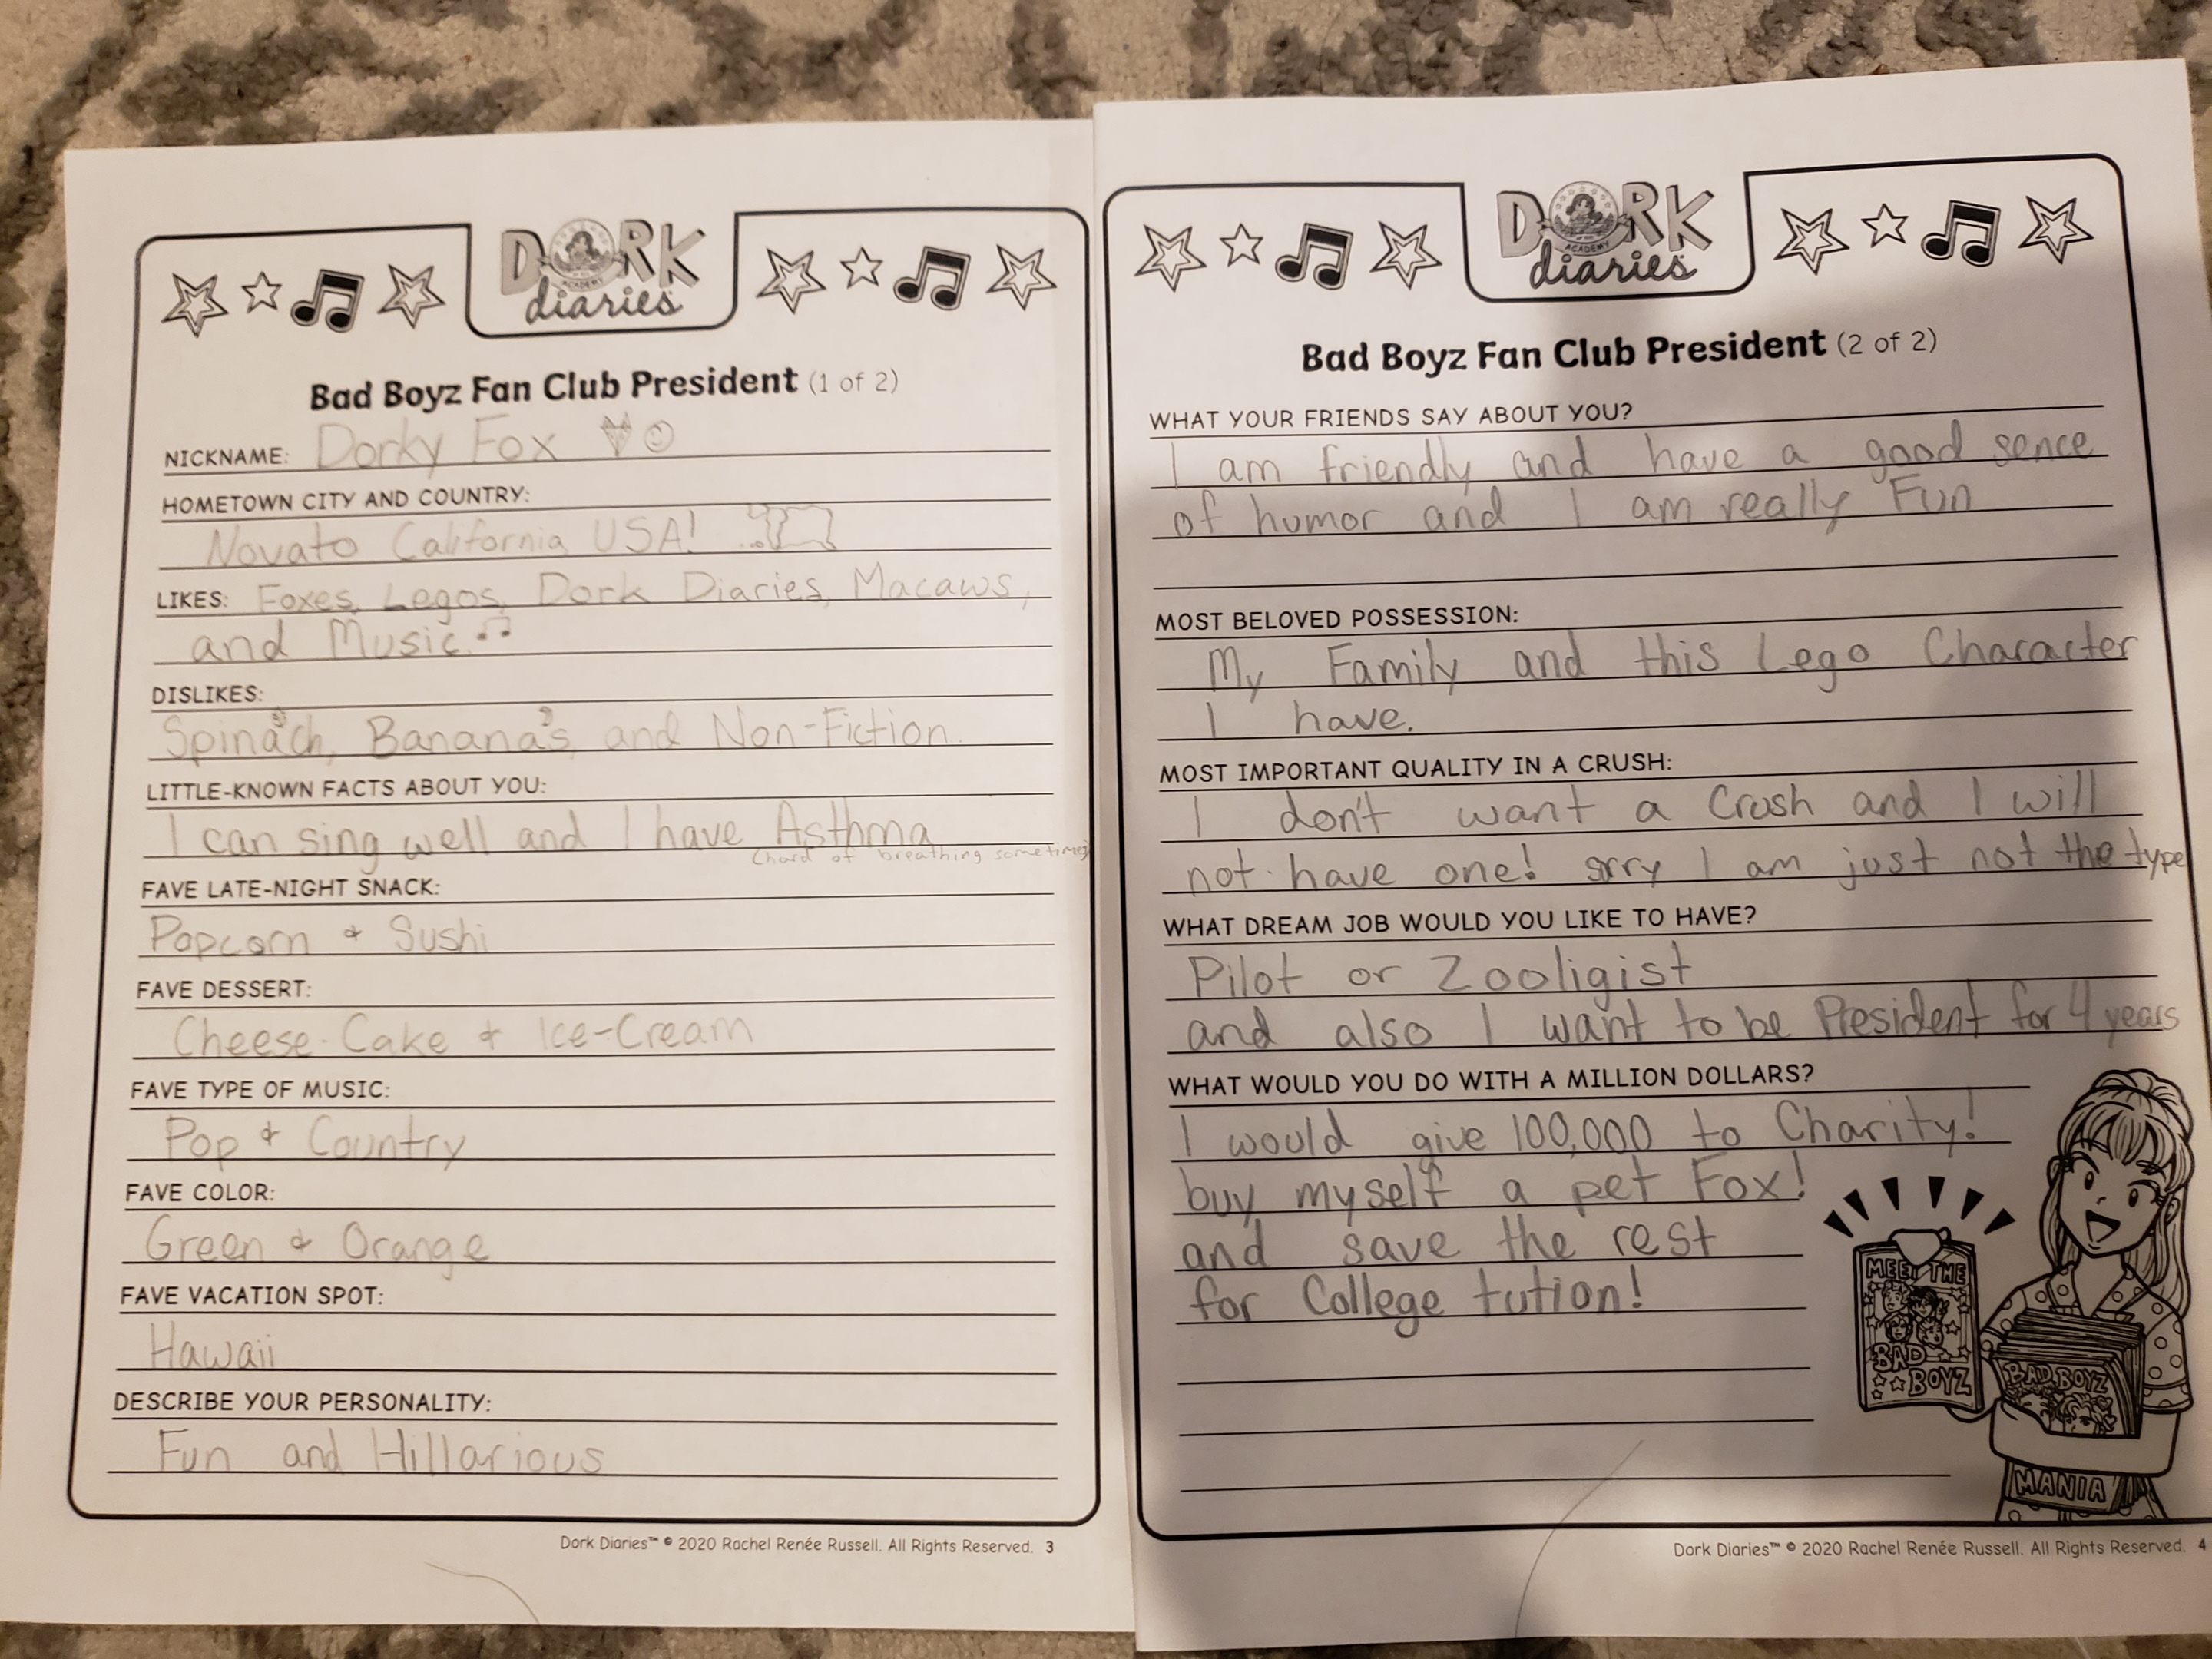 DORK
ACADEMY
diaries
Bad Boyz Fan Club President (1 of 2)
NICKNAME: Dorky Fox
HOMETOWN CITY AND COUNTRY:
Novato California USA!
LIKES: Foxes, Legos, Dork Diaries, Macaws,
and Music.
DISLIKES:
Spinach, Banana's, and Non-Fiction.
LITTLE-KNOWN FACTS ABOUT YOU:
I can sing well and I have Asthma
(hard of breathing sometimes)
FAVE LATE-NIGHT SNACK:
Popcorn & Sushi
FAVE DESSERT:
Cheese-Cake & Ice-Cream
FAVE TYPE OF MUSIC:
Pop & Country
FAVE COLOR:
Green & Orange
FAVE VACATION SPOT:
Hawaii
DESCRIBE YOUR PERSONALITY:
Fun and Hillarious
Dork Diaries™ © 2020 Rachel Renée Russell. All Rights Reserved. 3
DORK
ACADEMY
diaries
Bad Boyz Fan Club President (2 of 2)
WHAT YOUR FRIENDS SAY ABOUT YOU?
I am friendly and have a good sence
of humor and I am really Fun
MOST BELOVED POSSESSION:
My Family and this Lego Character
I have.
MOST IMPORTANT QUALITY IN A CRUSH:
I don't want a Crush and I will
not have one! sorry I am just not the type
WHAT DREAM JOB WOULD YOU LIKE TO HAVE?
Pilot or Zooligist
and also I want to be President for 4 years
WHAT WOULD YOU DO WITH A MILLION DOLLARS?
I would give 100,000 to Charity!
buy myself a pet Fox!
and save the rest
for College tution!
MEET THE
BAD
BOYZ
BAD BOYZ
MANIA
Dork Diaries™ © 2020 Rachel Renée Russell. All Rights Reserved. 4